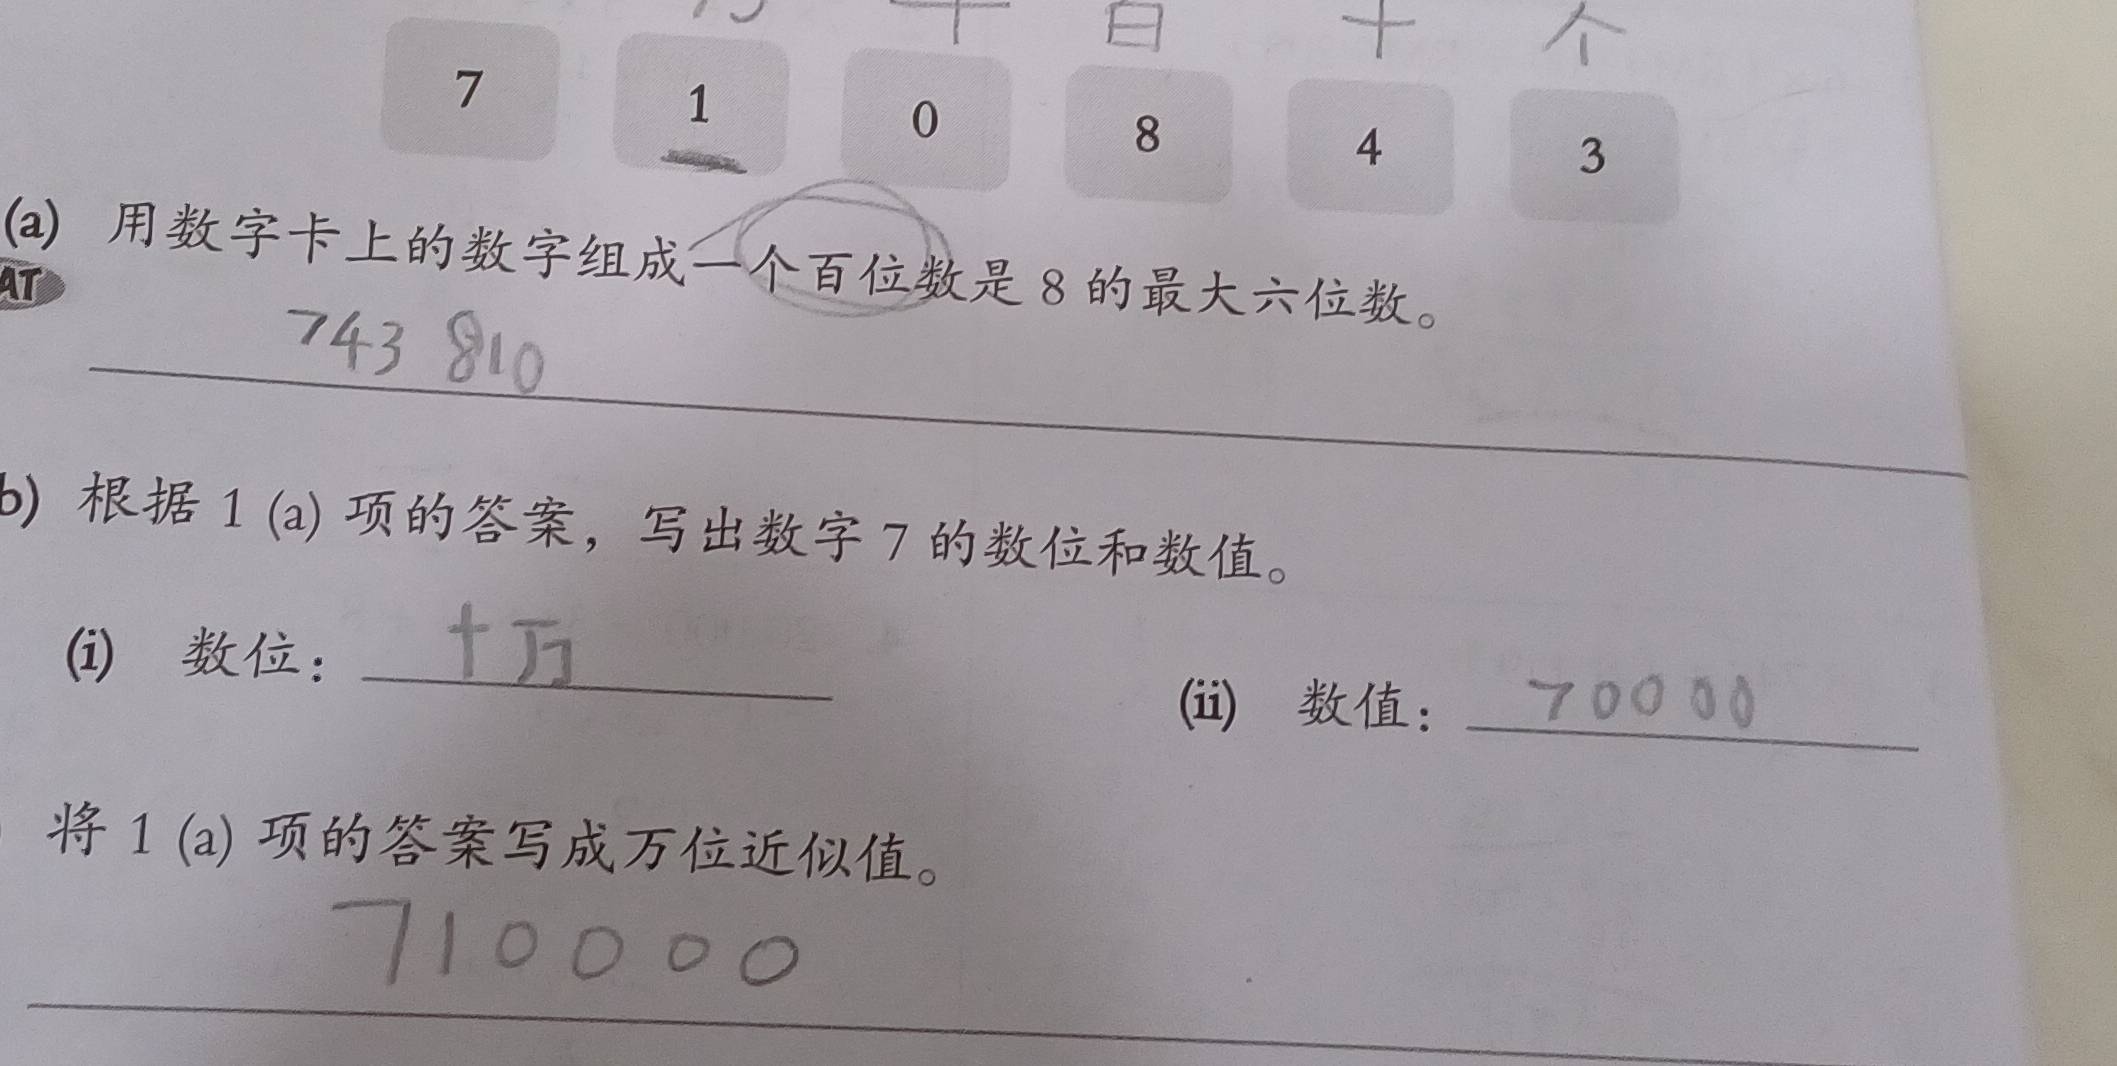 百 十 个
7 1 0 8 4 3
(a) 用数字卡上的数字组成一个百位数是 8 的最大六位数。
AT
743 810
b) 根据 1 (a) 项的答案，写出数字 7 的数位和数值。
(i) 数位：十万
(ii) 数值：70000
将 1 (a) 项的答案写成万位近似值。
710000